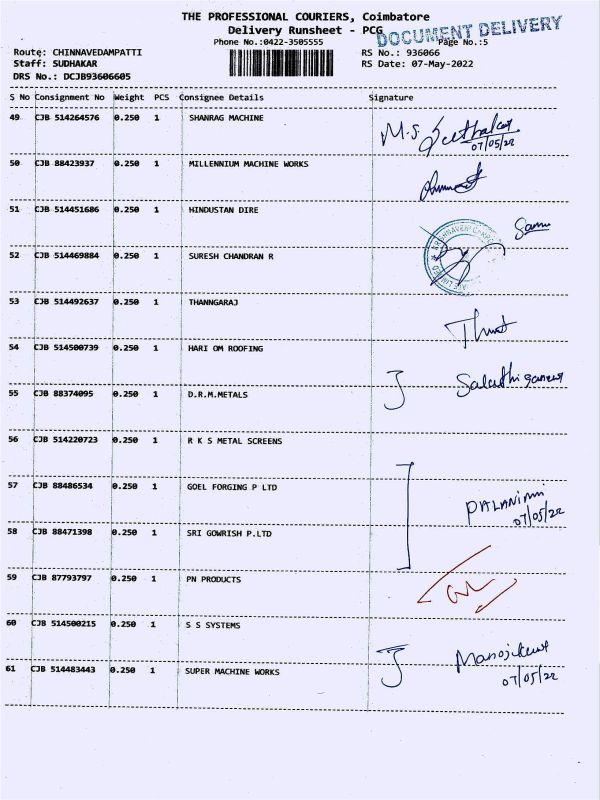 THE PROFESSIONAL COURIERS, Coimbatore
Delivery Runsheet - PCG
DOCUMENT DELIVERY
Phone No.:0422-3505555
Page No.:5
Route: CHINNAVEDAMPATTI
RS No.: 936066
Staff: SUDHAKAR
RS Date: 07-May-2022
DRS No.: DCJB93606605
S No Consignment No Weight PCS Consignee Details Signature
49 CJB 514264576 0.250 1 SHANRAG MACHINE
M.S.
07/05/22
50 CJB 88423937 0.250 1 MILLENNIUM MACHINE WORKS
51 CJB 514451686 0.250 1 HINDUSTAN DIRE
52 CJB 514469884 0.250 1 SURESH CHANDRAN R
53 CJB 514492637 0.250 1 THANNGARAJ
54 CJB 514500739 0.250 1 HARI OM ROOFING
55 CJB 88374095 0.250 1 D.R.M.METALS
56 CJB 514220723 0.250 1 R K S METAL SCREENS
57 CJB 88486534 0.250 1 GOEL FORGING P LTD
07/05/22
58 CJB 88471398 0.250 1 SRI GOWRISH P.LTD
59 CJB 87793797 0.250 1 PN PRODUCTS
60 CJB 514500215 0.250 1 S S SYSTEMS
61 CJB 514483443 0.250 1 SUPER MACHINE WORKS
07/05/22